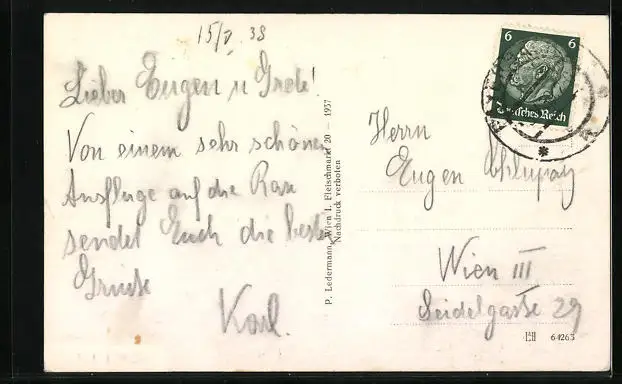 15/V. 38
Lieber Eugen u Grete!
Von einem sehr schönen
Ausfluge auf die Rax
sendet Euch die besten
Grüsse
Karl.
P. Ledermann, Wien I, Fleischmarkt 20 — 1937
Nachdruck verboten
6 6
Deutsches Reich
Herrn
Eugen
Wien III
Seidelgasse 29
64263